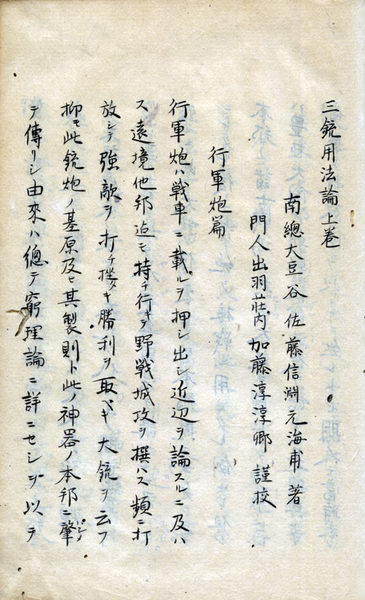 三銃用法論上巻
南總大豆谷 佐藤信淵元海甫 著
門人出羽荘内 加藤淳淳卿 謹校
行軍炮篇
行軍炮ハ戦車ニ載ルヲ押シ出シ近辺ヲ論スルニ及ハ
ス遠境他邦迠モ持チ行キテ野戦城攻ヲ撰ハス頻ニ打
放シテ強敵ヲ打チ摧キ勝利ヲ取ベキ大銃ヲ云フ
抑モ此銃炮ノ基原及ヒ其製則ト此ノ神器ノ本邦ニ肇
テ傳リシ由來ハ總テ窮理論ニ詳ニセシヲ以テ